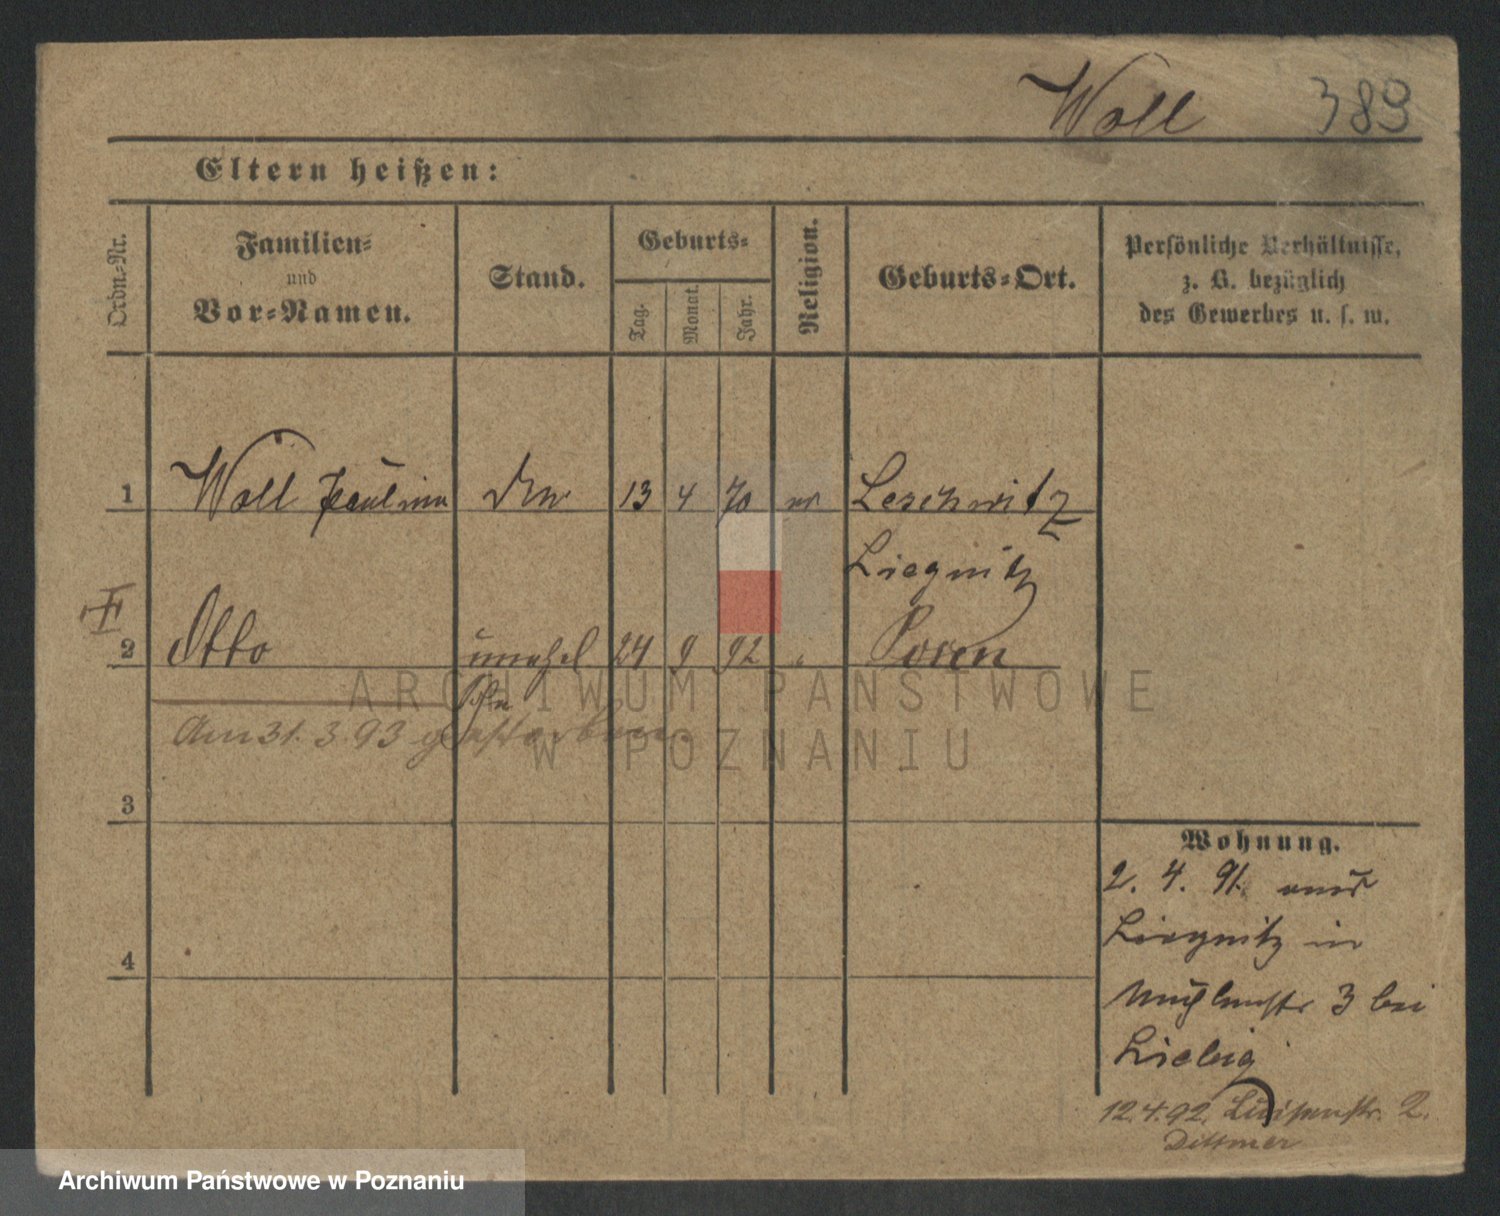 Woll 389
Eltern heißen:
Ordn.=Nr.
Familien=
und
Vor=Namen.
Stand.
Geburts=
Tag.
Monat.
Jahr.
Religion.
Geburts=Ort.
Persönliche Verhältnisse,
z. B. bezüglich
des Gewerbes u. s. w.
1 Woll Pauline 13 4 70 Leschwitz
Liegnitz
2 Otto unehel 24 9 92 Posen
Am 31.3.93 gestorben
3
4
Wohnung.
2. 4. 91. aus
Liegnitz in
Mühlenstr 3 bei
Liebig
12.4.92. Luisenstr. 2.
Dittmer
ARCHIWUM PAŃSTWOWE
W POZNANIU
Archiwum Państwowe w Poznaniu